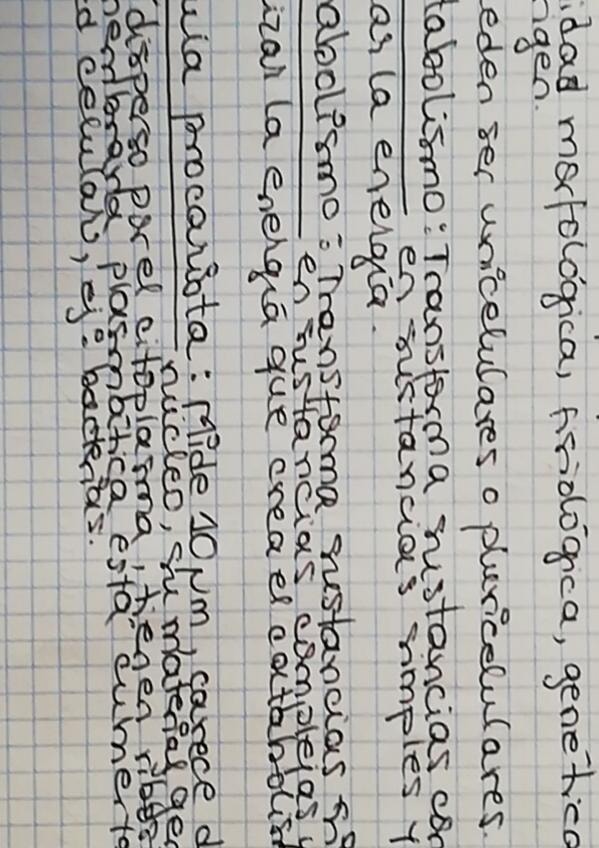 idad morfológica, fisiológica, genético
ngen.
eden ser unicelulares o pluricelulares.
tabolismo: Transforma sustancias com
en sustancias simples y
ar la energía.
abolismo: Transforma sustancias sim
en sustancias complejas y
izar la energía que crea el catabolism
ula procariota: Mide 10 µm, carece d
núcleo, su material gen
disperso por el citoplasma, tienen ribos
membrana plasmática está cubierta
d celular, ej: bacterias.